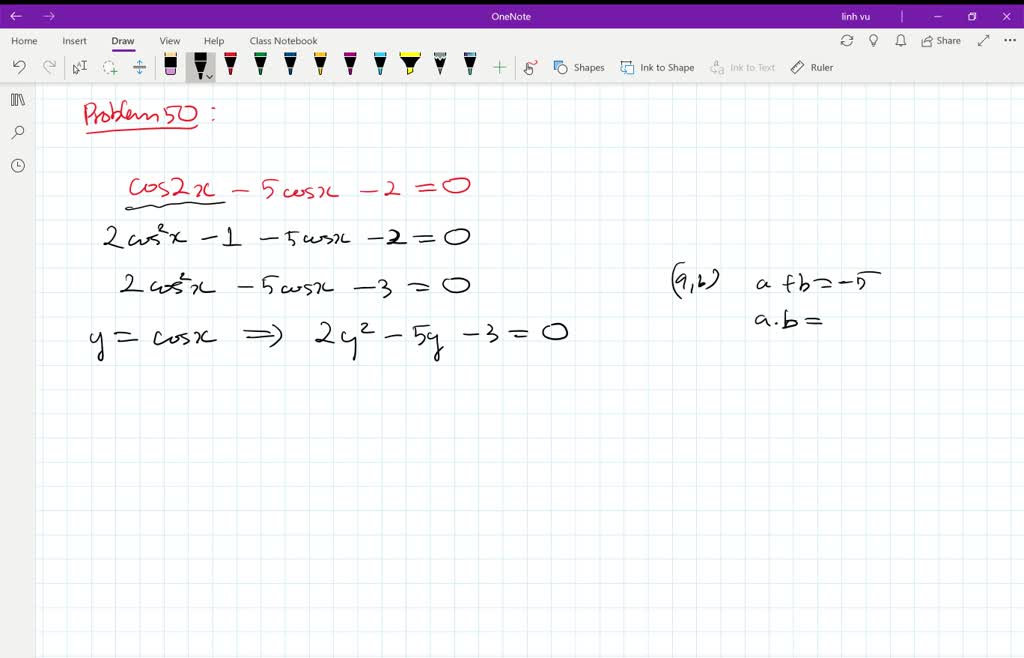 OneNote
linh vu
Home Insert Draw View Help Class Notebook
Share
Shapes Ink to Shape Ink to Text Ruler
Problem 50 :
cos2x - 5cosx - 2 = 0
2cos²x - 1 - 5cosx - 2 = 0
2cos²x - 5cosx - 3 = 0
y = cosx ⟹ 2y² - 5y - 3 = 0
(a,b) a + b = -5
a.b =